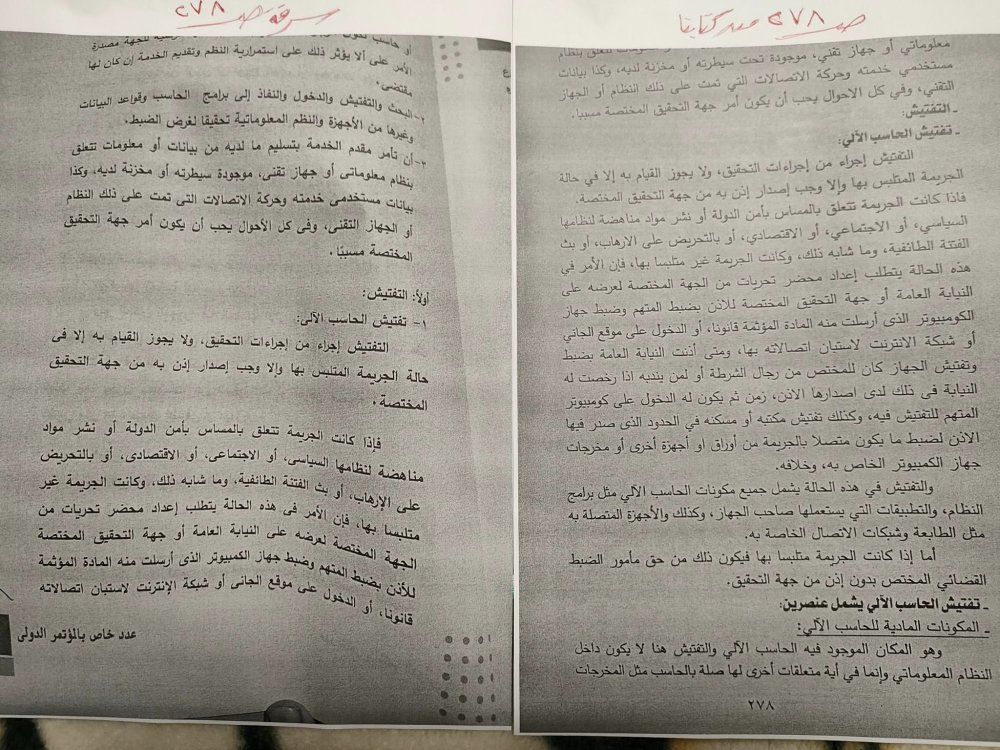 صـ ٢٧٨ من كتابنا
معلوماتي أو جهاز تقني، موجودة تحت سيطرته أو مخزنة لديه، وكذا بيانات
مستخدمي خدمته وحركة الاتصالات التي تمت على ذلك النظام أو الجهاز
التقني، وفي كل الاحوال يحب أن يكون أمر جهة التحقيق المختصة مسببا.
ـ التفتيش:
ـ تفتيش الحاسب الآلي:
التفتيش إجراء من إجراءات التحقيق، ولا يجوز القيام به إلا في حالة
الجريمة المتلبس بها وإلا وجب إصدار إذن به من جهة التحقيق المختصة.
فاذا كانت الجريمة تتعلق بالمساس بأمن الدولة أو نشر مواد مناهضة لنظامها
السياسي، أو الاجتماعي، أو الاقتصادي، أو بالتحريض على الارهاب، أو بث
الفتنة الطائفية، وما شابه ذلك، وكانت الجريمة غير متلبسا بها، فإن الأمر في
هذه الحالة يتطلب إعداد محضر تحريات من الجهة المختصة لعرضه على
النيابة العامة أو جهة التحقيق المختصة للأذن بضبط المتهم وضبط جهاز
الكومبيوتر الذى أرسلت منه المادة المؤثمة قانونا، أو الدخول على موقع الجاني
أو شبكة الانترنت لاستبان اتصالاته بها، ومتى أذنت النيابة العامة بضبط
وتفتيش الجهاز كان للمختص من رجال الشرطة أو لمن يندبه اذا رخصت له
النيابة فى ذلك لدى اصدارها الاذن، زمن ثم يكون له الدخول على كومبيوتر
المتهم للتفتيش فيه، وكذلك تفتيش مكتبه أو مسكنه في الحدود الذى صدر فيها
الاذن لضبط ما يكون متصلا بالجريمة من أوراق او أجهزة أخرى أو مخرجات
جهاز الكمبيوتر الخاص به، وخلافه.
والتفتيش في هذه الحالة يشمل جميع مكونات الحاسب الآلي مثل برامج
النظام، والتطبيقات التي يستعملها صاحب الجهاز، وكذلك والأجهزة المتصلة به
مثل الطابعة وشبكات الاتصال الخاصة به.
أما إذا كانت الجريمة متلبسا بها فيكون ذلك من حق مأمور الضبط
القضائي المختص بدون إذن من جهة التحقيق.
ـ تفتيش الحاسب الآلي يشمل عنصرين:
ـ المكونات المادية للحاسب الآلي:
وهو المكان الموجود فيه الحاسب الآلي والتفتيش هنا لا يكون داخل
النظام المعلوماتي وإنما في أية متعلقات أخرى لها صلة بالحاسب مثل المخرجات
٢٧٨
سرقة صـ ٢٧٨
الأمر على ألا يؤثر ذلك على استمرارية النظم وتقديم الخدمة إن كان لها
مقتضى.
٢- البحث والتفتيش والدخول والنفاذ إلى برامج الحاسب وقواعد البيانات
وغيرها من الأجهزة والنظم المعلوماتية تحقيقا لغرض الضبط.
٣- أن تأمر مقدم الخدمة بتسليم ما لديه من بيانات أو معلومات تتعلق
بنظام معلوماتى أو جهاز تقنى، موجودة سيطرته أو مخزنة لديه، وكذا
بيانات مستخدمى خدمته وحركة الاتصالات التى تمت على ذلك النظام
أو الجهاز التقنى، وفى كل الأحوال يحب أن يكون أمر جهة التحقيق
المختصة مسببًا .
أولاً: التفتيش:
١- تفتيش الحاسب الآلى:
التفتيش إجراء من إجراءات التحقيق، ولا يجوز القيام به إلا فى
حالة الجريمة المتلبس بها وإلا وجب إصدار إذن به من جهة التحقيق
المختصة .
فإذا كانت الجريمة تتعلق بالمساس بأمن الدولة أو نشر مواد
مناهضة لنظامها السياسى، أو الاجتماعى، أو الاقتصادى، أو بالتحريض
على الإرهاب، أو بث الفتنة الطائفية، وما شابه ذلك، وكانت الجريمة غير
متلبسا بها، فإن الأمر فى هذه الحالة يتطلب إعداد محضر تحريات من
الجهة المختصة لعرضه على النيابة العامة أو جهة التحقيق المختصة
للأذن بضبط المتهم وضبط جهاز الكمبيوتر الذى أرسلت منه المادة المؤثمة
قانونا، أو الدخول على موقع الجانى أو شبكة الإنترنت لاستبان اتصالاته
عدد خاص بالمؤتمر الدولى